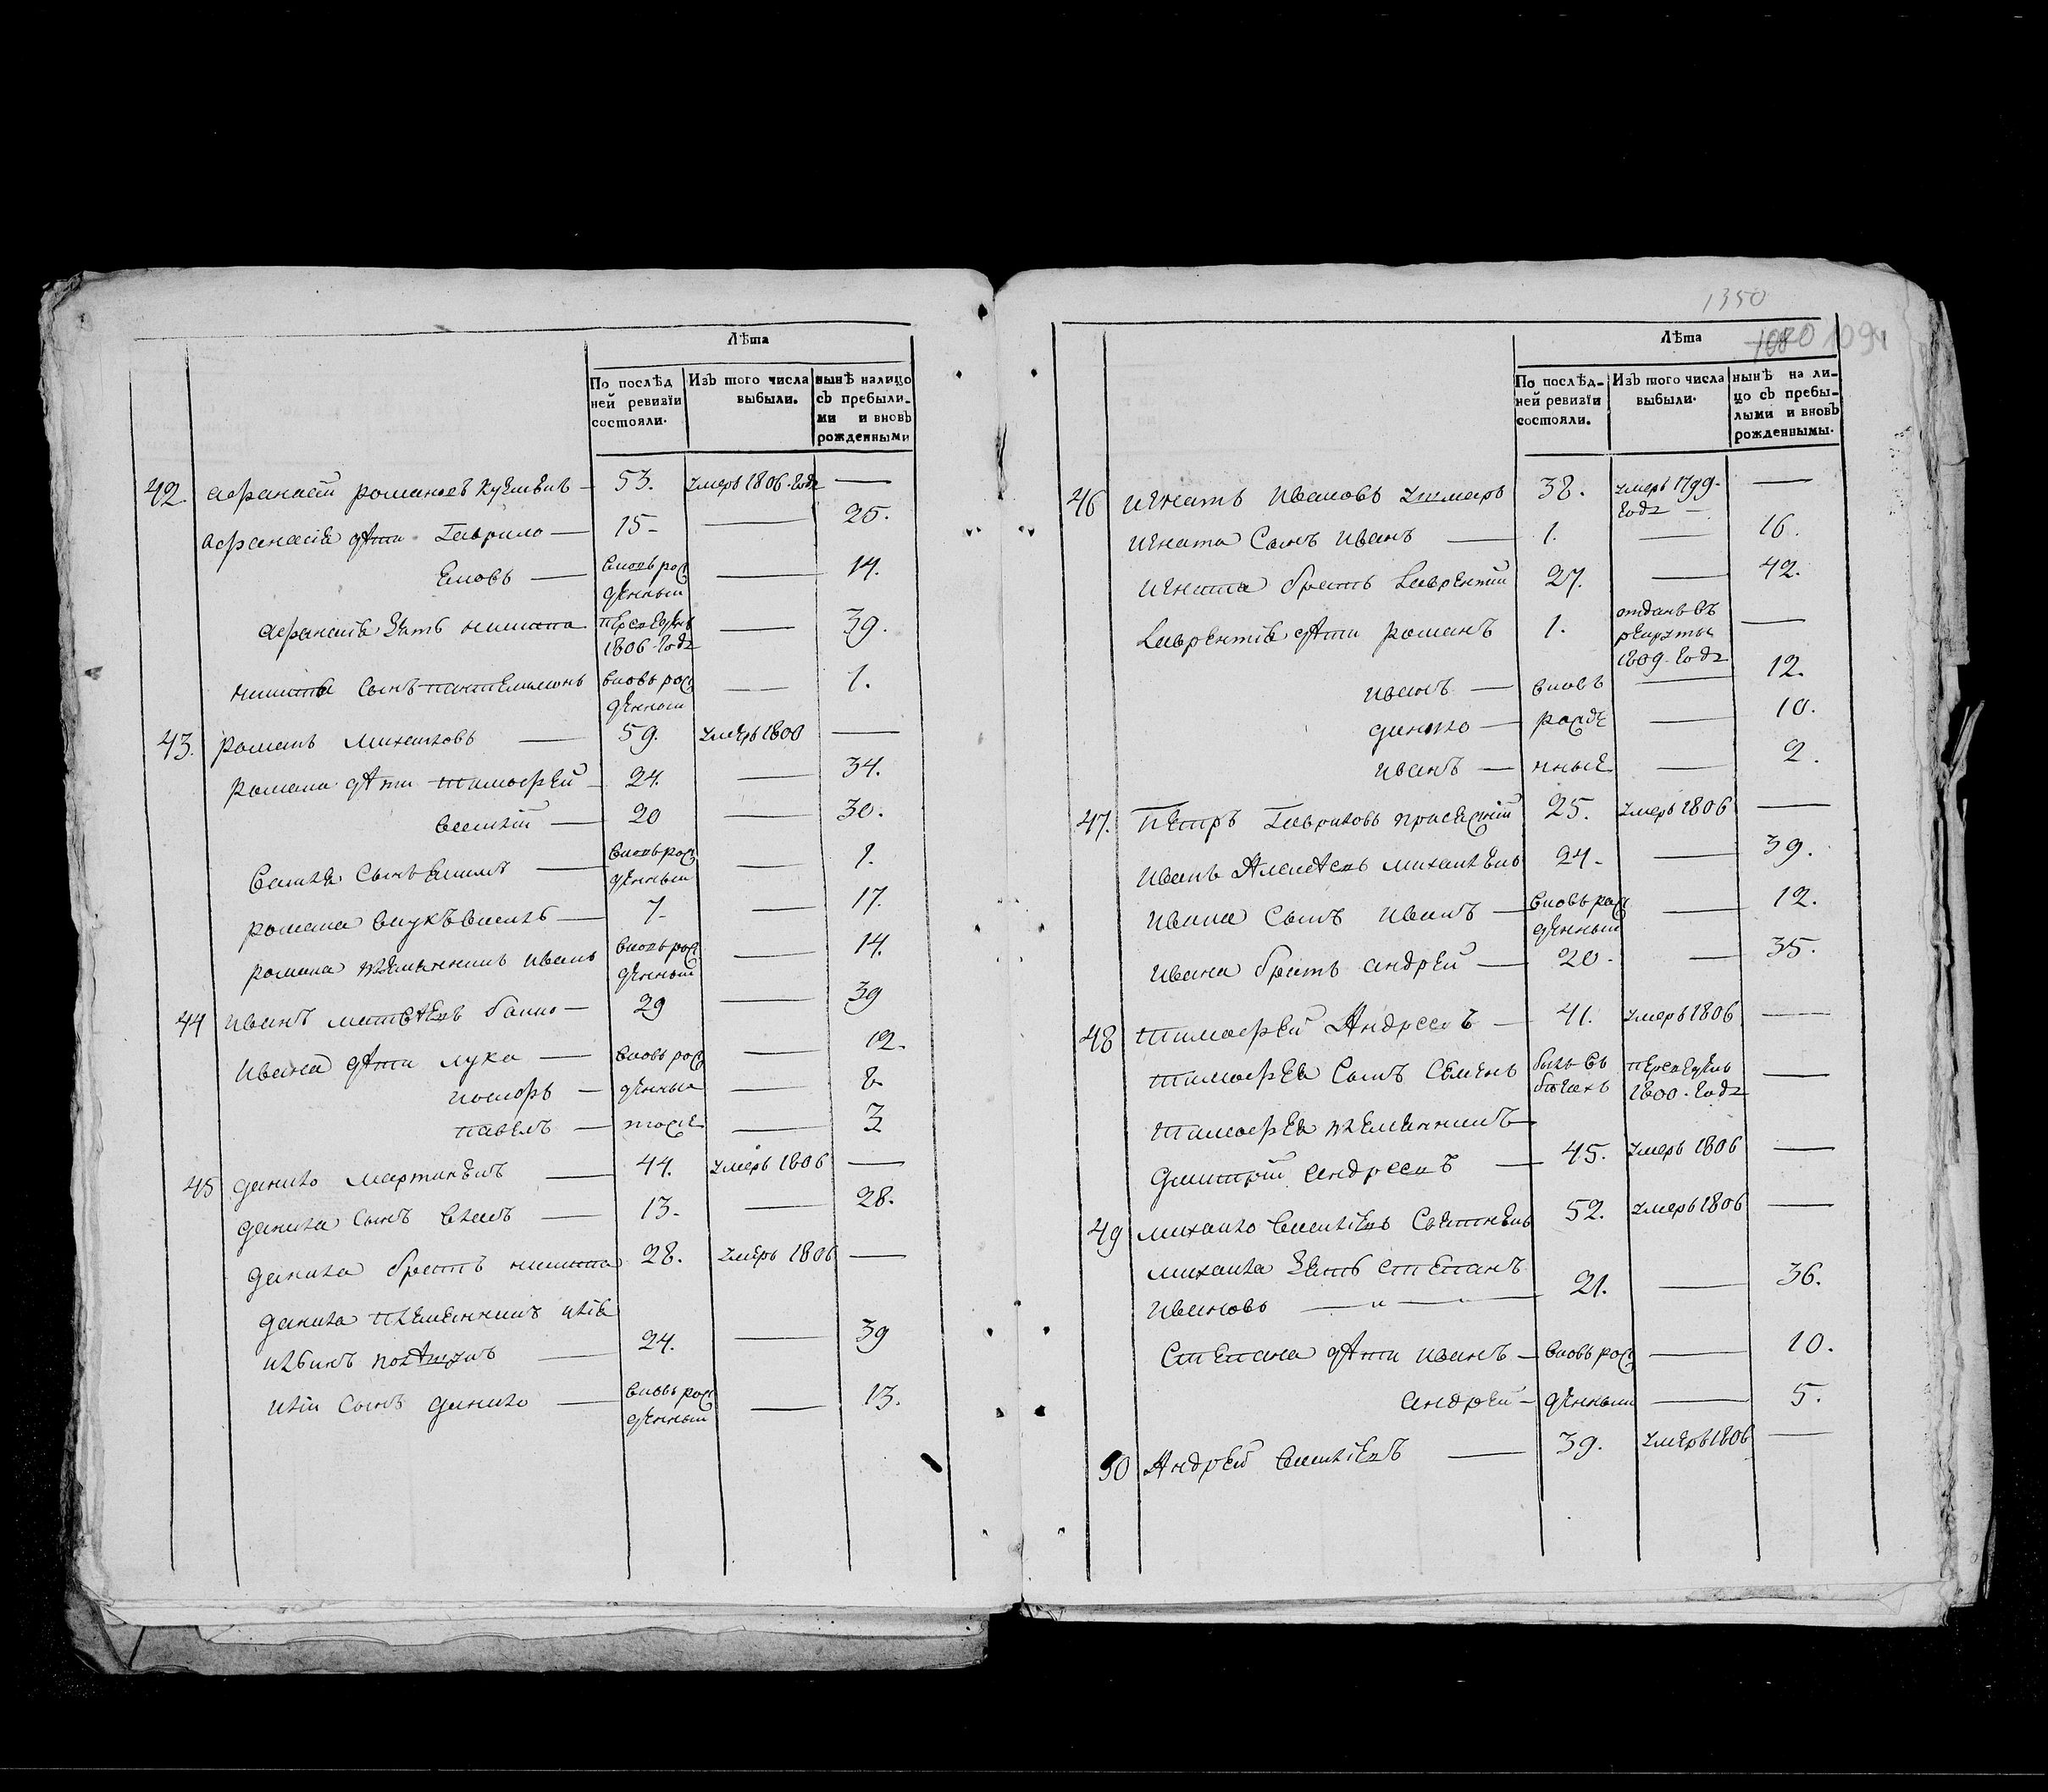 Лѣта
По послѣд
ней ревизїи
состояли.
Изъ того числа
выбыли.
нынѣ налицо
съ прибыли-
ми и вновь
рожденными
42. Афанасій Романовъ — 53. умеръ 1806 году —
Афанасія дѣти Гаврило — 15 — — 25.
вновь рож
денный — 14.
Афанасія зять Никита 1806 году — 39.
Никиты сынъ Пантелимонъ вновь рож
денный — 1.
43. Романъ Михайловъ — 59. умеръ 1800 —
Романа дѣти Тимофей — 24. — 34.
Василій — 20 — 30.
Василя сынъ — вновь рож
денный — 1.
Романа внукъ Василь — 7 — — 17.
Романа племянникъ Иванъ вновь рож
денный — 14.
44 Иванъ Матвѣевъ — 29 — 39
Ивана дѣти Лука — вновь рож — 12.
денные — 8
Павелъ — тоже — 3
45 Данило — 44. умеръ 1806 —
Данила сынъ — 13. — 28.
Данила братъ Никита 28. умеръ 1806 —
Данила племянникъ Илія
— 24. — 39
Иліи сынъ Данило — вновь рож
денный — 13.
1350
1080 1094
Лѣта
По послѣд-
ней ревизїи
состояли.
Изъ того числа
выбыли.
нынѣ на ли-
цо съ прибы-
лыми и вновь
рожденнымы.
46 Игнатъ Ивановъ 38. умеръ 1799.
году —
Игната сынъ Иванъ — 1. — 16.
Игната братъ Лаврентій 27. — 42.
Лаврентія дѣти Романъ 1. отданъ въ
рекруты
1809. году —
Иванъ — вновь — 12.
Данило — рожде — 10.
Иванъ — нные — 2.
47. Петръ Гавриловъ 25. умеръ 1806 —
Иванъ Алексѣевъ 24. — 39.
Ивана сынъ Иванъ — вновь рож
денный — 12.
Ивана братъ Андрей — 20. — 35.
48 Тимофей Андреевъ — 41. умеръ 1806 —
Тимофея сынъ Семенъ былъ въ
бѣгахъ 1800. году —
Тимофея племянникъ
Дмитрій Андреевъ — 45. умеръ 1806 —
49 Михайло Василіевъ 52. умеръ 1806 —
Михайла зять Степанъ
Ивановъ — " — 21. — 36.
Степана дѣти Иванъ — вновь рож — 10.
Андрей — денный — 5.
50 Андрей Василіевъ — 39. умеръ 1806 —